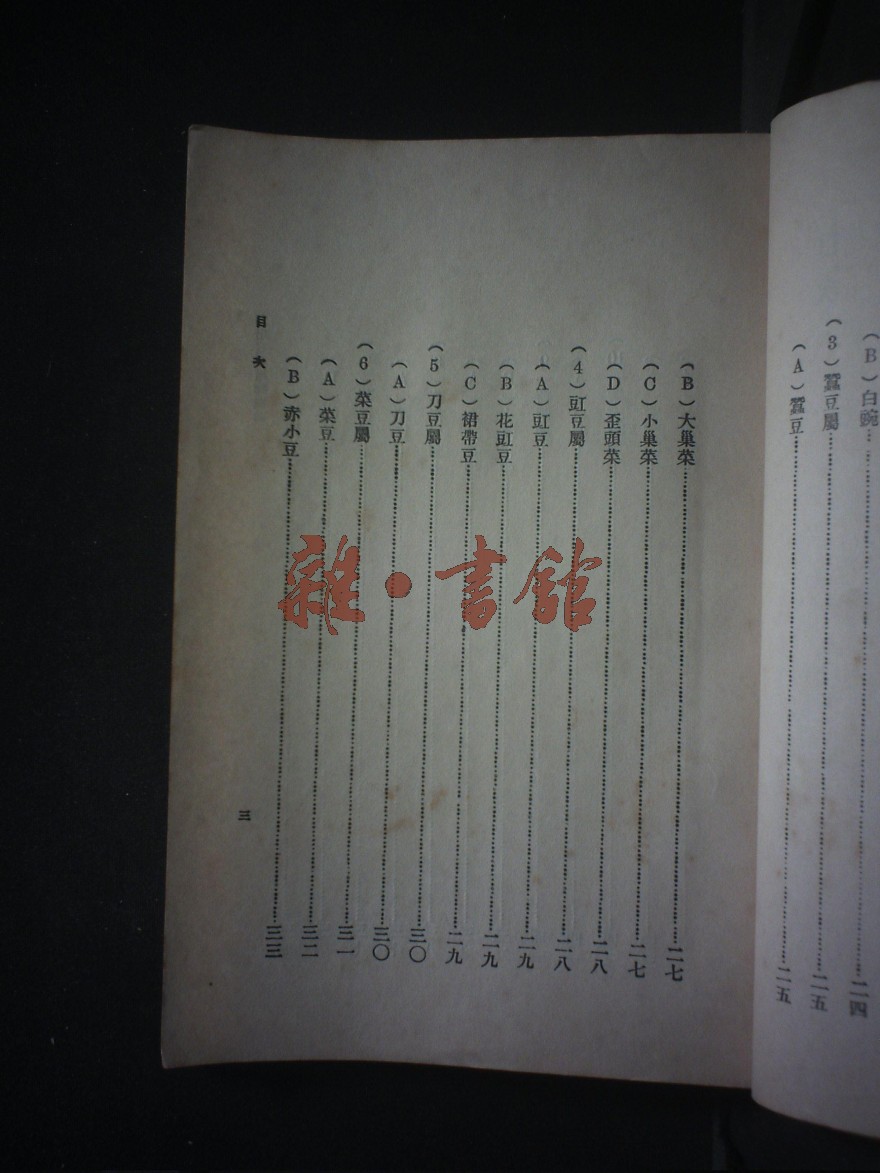 （B）白豌……二四
（3）蠶豆屬……二五
（A）蠶豆……二五
（B）大巢菜……二七
（C）小巢菜……二七
（D）歪頭菜……二八
（4）豇豆屬……二八
（A）豇豆……二九
（B）花豇豆……二九
（C）裙帶豆……二九
（5）刀豆屬……三〇
（A）刀豆……三〇
（6）菜豆屬……三一
（A）菜豆……三二
（B）赤小豆……三三
目次
三
雜·書館